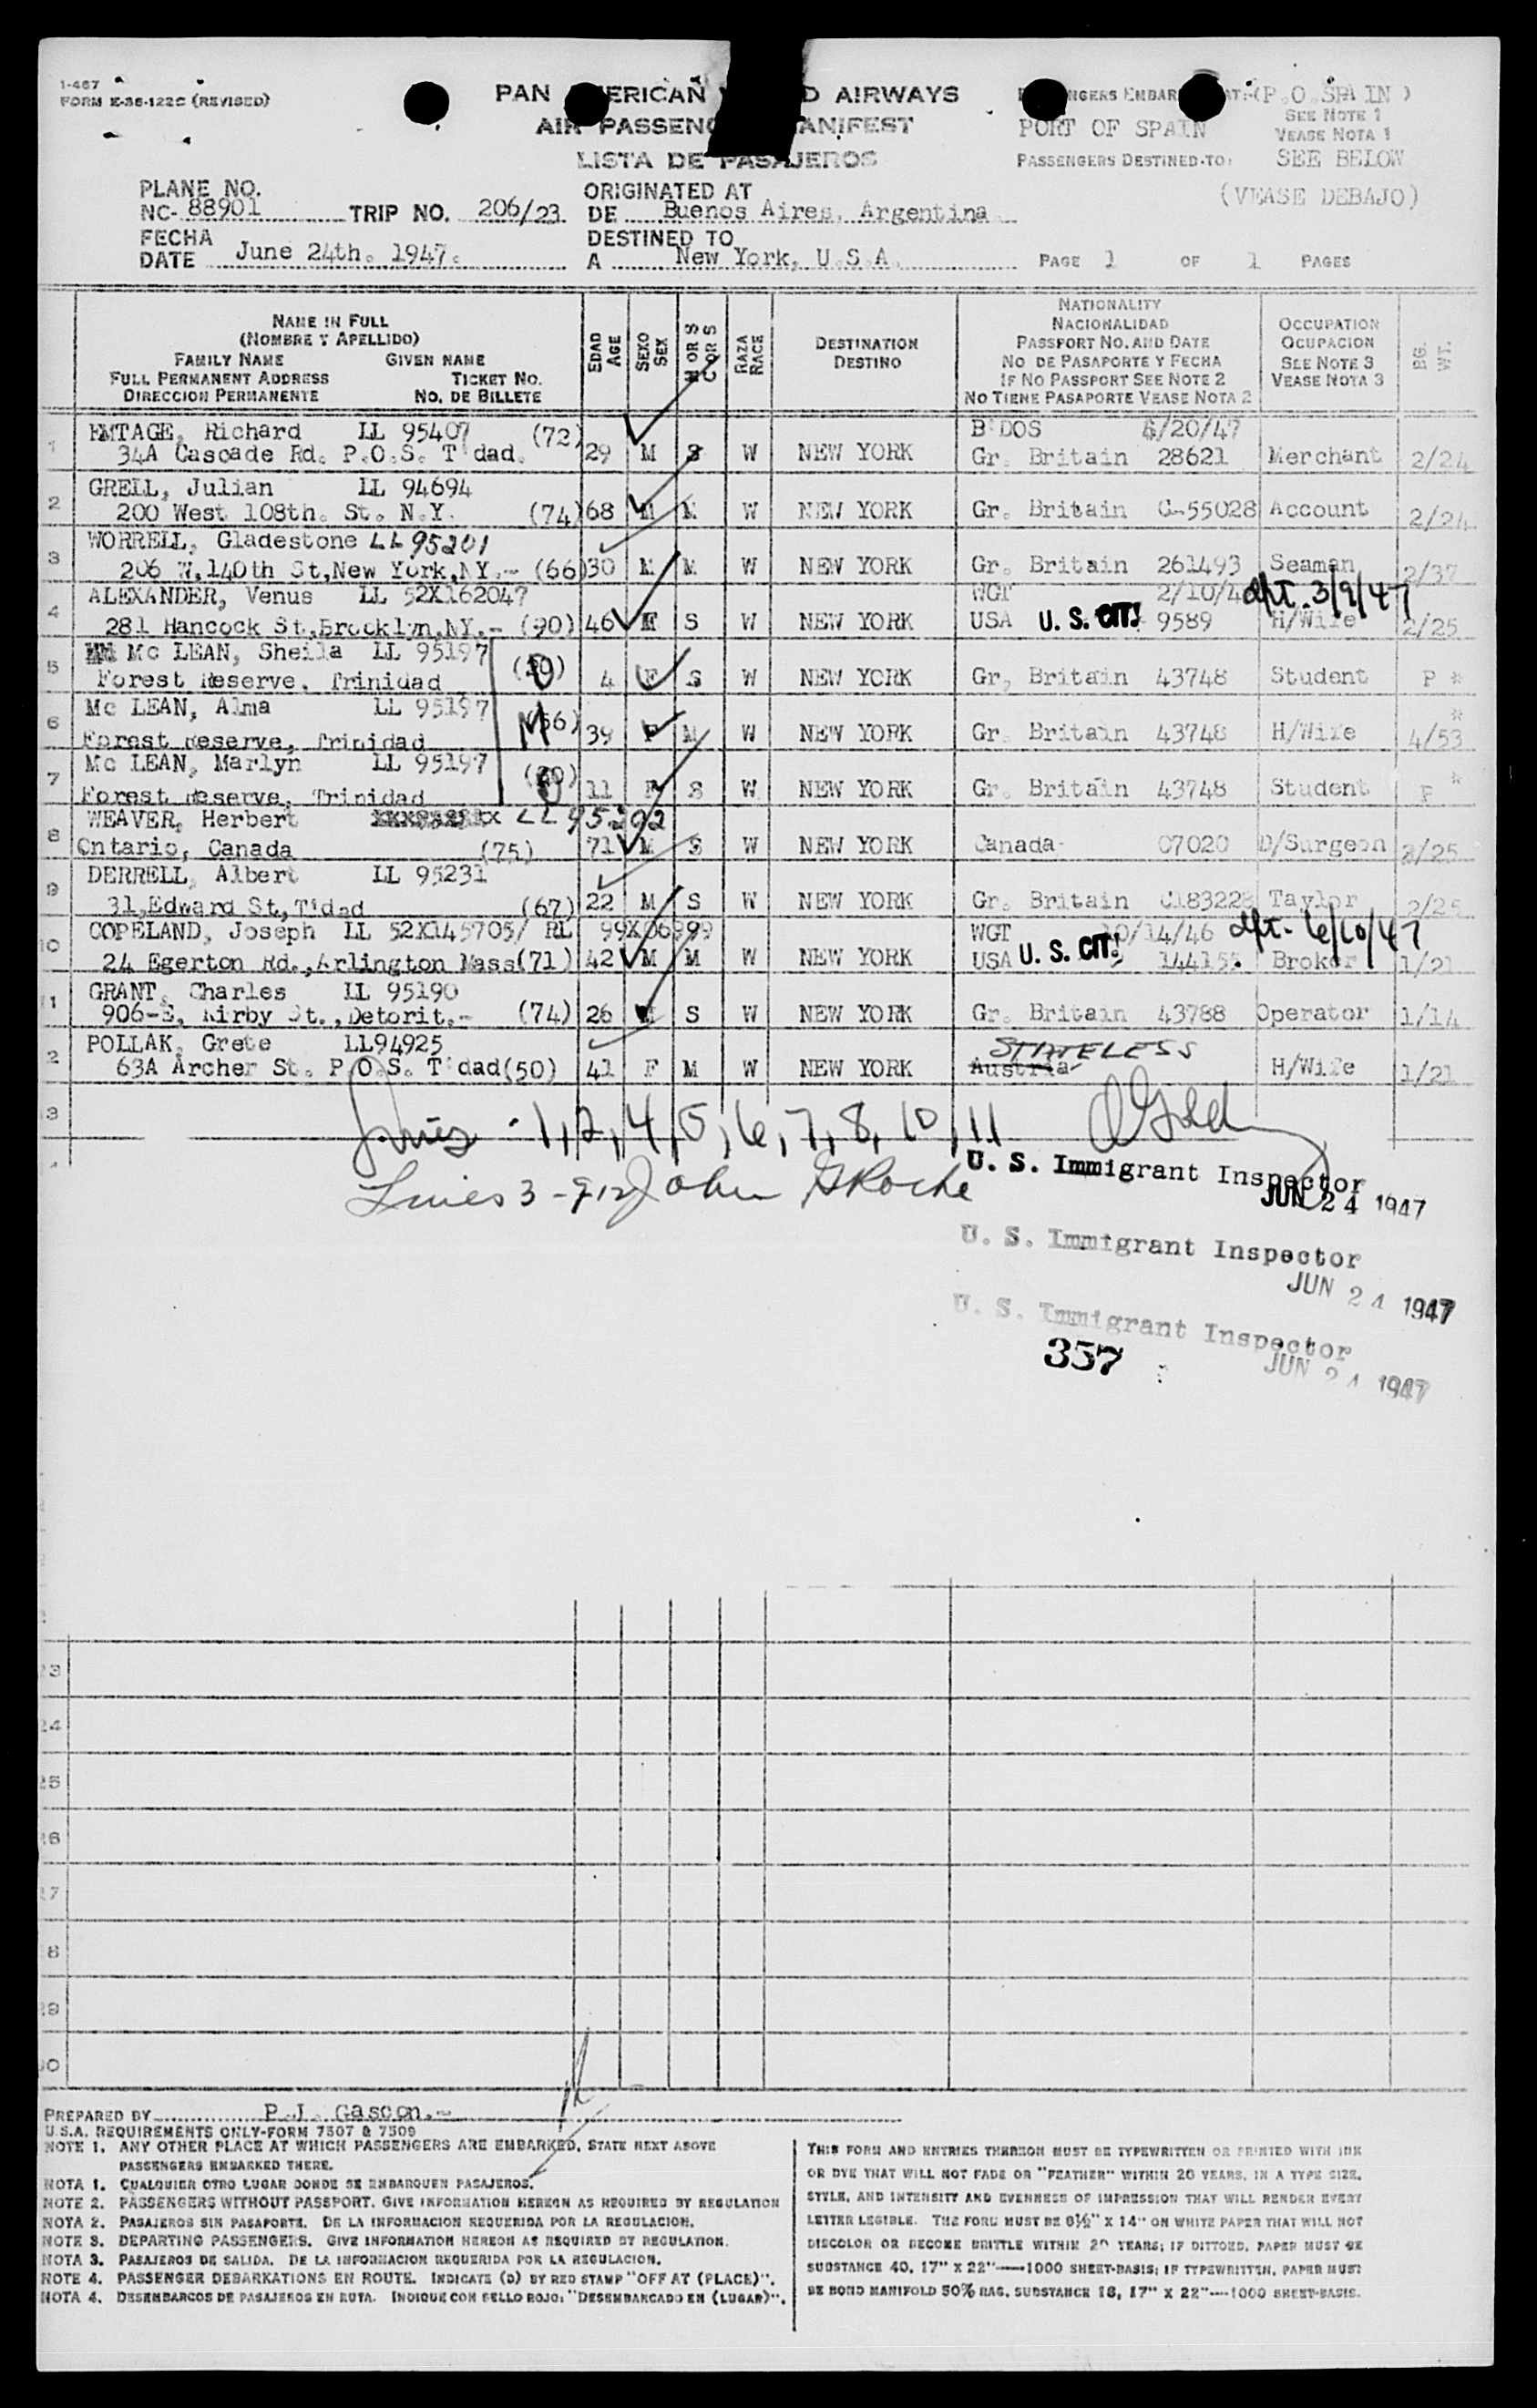 1-467
FORM E-36-122C (REVISED)
PAN ERICAN D AIRWAYS
AIR PASSENG ANIFEST
LISTA DE PASAJEROS
NGERS EMBAR AT: (P.O. SPAIN)
PORT OF SPAIN
SEE NOTE 1
VEASE NOTA 1
PASSENGERS DESTINED TO: SEE BELOW
(VEASE DEBAJO)
PLANE NO.
NC- 88901 TRIP NO. 206/23
ORIGINATED AT
DE Buenos Aires, Argentina
FECHA
DATE June 24th. 1947.
DESTINED TO
A New York, U.S.A.
PAGE 1 OF 1 PAGES
NAME IN FULL
(NOMBRE Y APELLIDO)
FAMILY NAME GIVEN NAME
FULL PERMANENT ADDRESS TICKET NO.
DIRECCION PERMANENTE NO. DE BILLETE
EDAD AGE
SEXO SEX
M OR S C OR S
RAZA RACE
DESTINATION
DESTINO
NATIONALITY
NACIONALIDAD
PASSPORT NO. AND DATE
NO DE PASAPORTE Y FECHA
IF NO PASSPORT SEE NOTE 2
NO TIENE PASAPORTE VEASE NOTA 2
OCCUPATION
OCUPACION
SEE NOTE 3
VEASE NOTA 3
BG. WT.
1 EMTAGE, Richard LL 95407 (72) B'DOS 6/20/47
34A Cascade Rd. P.O.S. T'dad. 29 M S W NEW YORK Gr. Britain 28621 Merchant 2/24
2 GRELL, Julian LL 94694
200 West 108th. St. N.Y. (74) 68 M M W NEW YORK Gr. Britain C-55028 Account 2/24
3 WORRELL, Gladestone LL 95201
206 W,140th St,New York,NY.- (66) 30 M M W NEW YORK Gr. Britain 261493 Seaman 2/37
4 ALEXANDER, Venus LL 52X162047 WGT 2/10/4 dpt. 3/9/47
281 Hancock St,Brooklyn,NY.- (90) 46 F S W NEW YORK USA U. S. CIT! 9589 H/Wife 2/25
5 Mc LEAN, Sheila LL 95197
Forest Reserve, Trinidad 4 F S W NEW YORK Gr, Britain 43748 Student P *
6 Mc LEAN, Alma LL 95197
Forest Reserve, Trinidad 39 F M W NEW YORK Gr. Britain 43748 H/Wife 4/53 *
7 Mc LEAN, Marlyn LL 95197
Forest Reserve, Trinidad 11 F S W NEW YORK Gr. Britain 43748 Student *
8 WEAVER, Herbert LL 95202
Ontario, Canada (75) 71 M S W NEW YORK Canada 07020 D/Surgeon 2/25
9 DERRELL, Albert LL 95231
31,Edward St,T'dad (67) 22 M S W NEW YORK Gr. Britain C183228 Taylor 2/25
10 COPELAND, Joseph LL 52X145705/ RL 99X06999 WGT 10/14/46 dpt- 6/10/47
24 Egerton Rd.,Arlington Mass(71) 42 M M W NEW YORK USA U. S. CIT! 144155. Broker 1/21
11 GRANT, Charles LL 95190
906-E, Kirby St.,Detorit.- (74) 26 M S W NEW YORK Gr. Britain 43788 Operator 1/14
2 POLLAK, Grete LL94925 STATELESS
63A Archer St. P.O.S. T'dad(50) 41 F M W NEW YORK Austria H/Wife 1/21
3
Lines - 1,2,4,5,6,7,8,10,11
U. S. Immigrant Inspector
JUN 24 1947
Lines 3-9-12 John G Roche
U. S. Immigrant Inspector
JUN 24 1947
U. S. Immigrant Inspector
JUN 24 1947
357
23
24
25
26
27
8
29
30
PREPARED BY P.J. Gascon.-
U.S.A. REQUIREMENTS ONLY-FORM 7507 & 7509
NOTE 1. ANY OTHER PLACE AT WHICH PASSENGERS ARE EMBARKED, STATE NEXT ABOVE
PASSENGERS EMBARKED THERE.
NOTA 1. CUALQUIER OTRO LUGAR DONDE SE EMBARQUEN PASAJEROS.
NOTE 2. PASSENGERS WITHOUT PASSPORT. GIVE INFORMATION HEREON AS REQUIRED BY REGULATION
NOTA 2. PASAJEROS SIN PASAPORTE. DE LA INFORMACION REQUERIDA POR LA REGULACION.
NOTE 3. DEPARTING PASSENGERS. GIVE INFORMATION HEREON AS REQUIRED BY REGULATION.
NOTA 3. PASAJEROS DE SALIDA. DE LA INFORMACION REQUERIDA POR LA REGULACION.
NOTE 4. PASSENGER DEBARKATIONS EN ROUTE. INDICATE (D) BY RED STAMP "OFF AT (PLACE)".
NOTA 4. DESEMBARCOS DE PASAJEROS EN RUTA. INDIQUE CON SELLO ROJO: "DESEMBARCADO EN (LUGAR)".
THIS FORM AND ENTRIES THEREON MUST BE TYPEWRITTEN OR PRINTED WITH INK
OR DYE THAT WILL NOT FADE OR "FEATHER" WITHIN 20 YEARS, IN A TYPE SIZE,
STYLE, AND INTENSITY AND EVENNESS OF IMPRESSION THAT WILL RENDER EVERY
LETTER LEGIBLE. THE FORM MUST BE 8½" X 14" ON WHITE PAPER THAT WILL NOT
DISCOLOR OR BECOME BRITTLE WITHIN 20 YEARS; IF DITTOED, PAPER MUST BE
SUBSTANCE 40, 17" X 22"—1000 SHEET-BASIS; IF TYPEWRITTEN, PAPER MUST
BE BOND MANIFOLD 50% RAG, SUBSTANCE 18, 17" X 22"—1000 SHEET-BASIS.